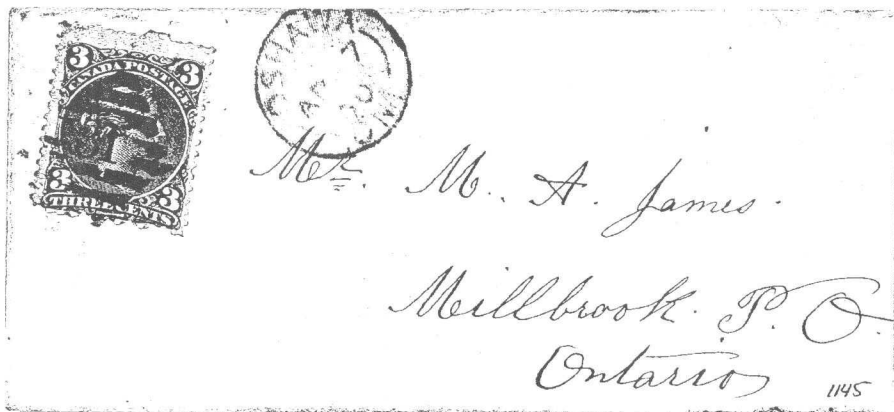 3 3
CANADA POSTAGE
3 3
THREE CENTS
OSHAWA
7
Mr. M. A. James.
Millbrook. P. O.
Ontario
1145